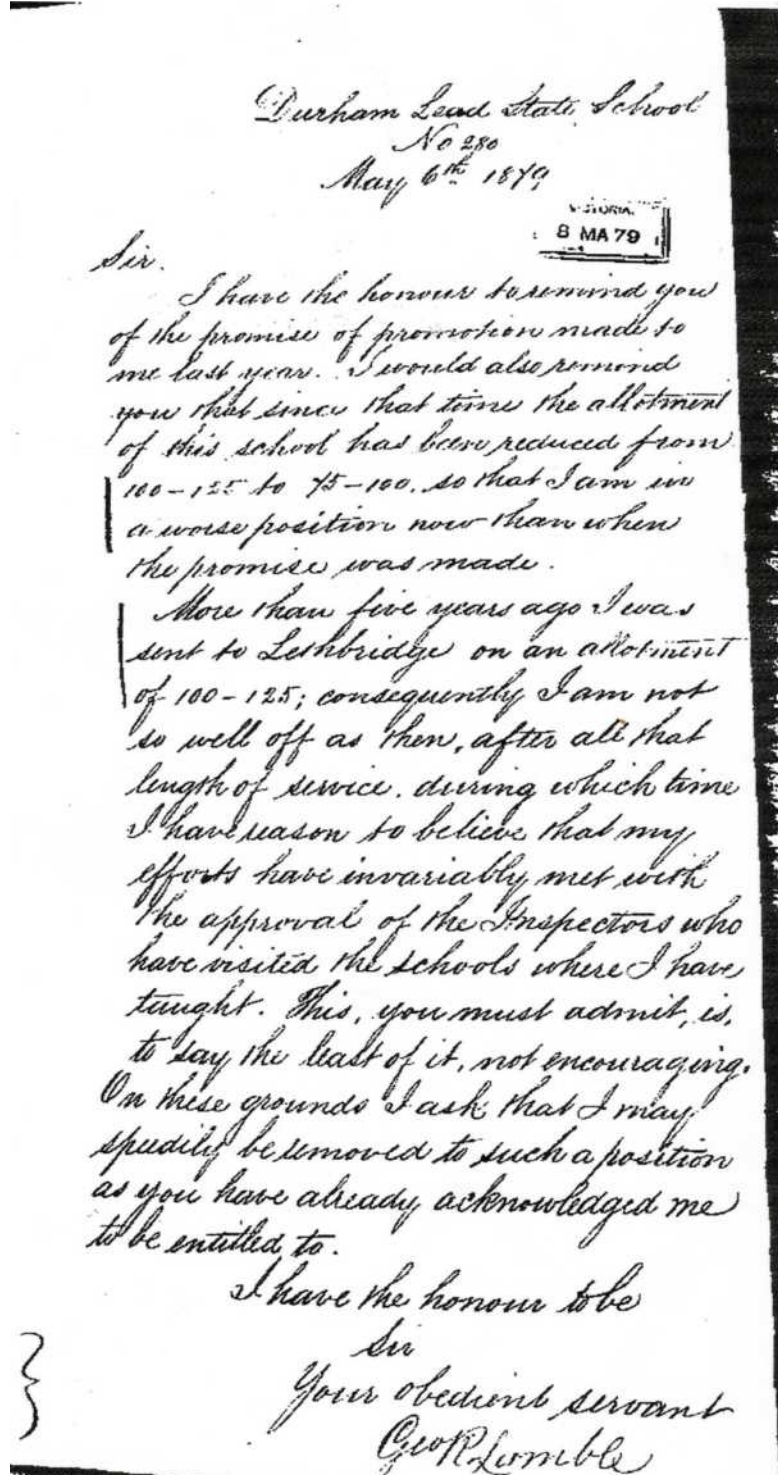 Durham Lead State School
No 280
May 6th 1879
VICTORIA.
8 MA 79
Sir.
I have the honour to remind you
of the promise of promotion made to
me last year. I would also remind
you that since that time the allotment
of this school has been reduced from
100-125 to 75-100, so that I am in
a worse position now than when
the promise was made.
More than five years ago I was
sent to Lethbridge on an allotment
of 100-125; consequently I am not
so well off as then, after all that
length of service, during which time
I have reason to believe that my
efforts have invariably met with
the approval of the Inspectors who
have visited the schools where I have
taught. This, you must admit, is,
to say the least of it, not encouraging.
On these grounds I ask that I may
speedily be removed to such a position
as you have already acknowledged me
to be entitled to.
I have the honour to be
Sir
Your obedient servant
Geo R. Lomble